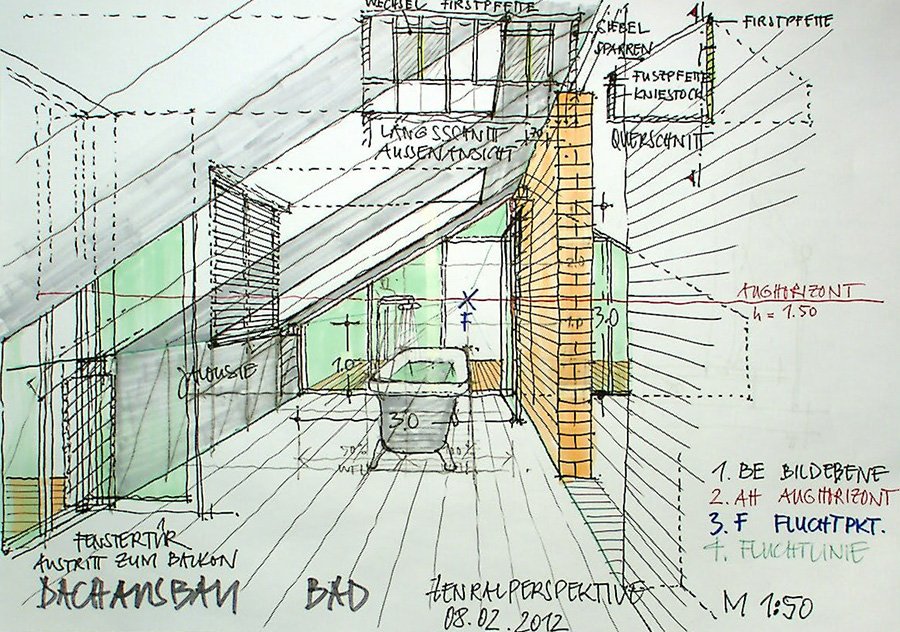 WECHSEL FIRSTPFETTE
GIEBEL
SPARREN
FIRSTPFETTE
FUSTPFETTE
KNIESTOCK
LÄNGSSCHNITT
AUSSENANSICHT
QUERSCHNITT
2.0
AUGHORIZONT
h = 1.50
F
1.0
3.0
1.0
JALOUSIE
3.0
50%
FENSTERTÜR
AUSTRITT ZUM BALKON
DACHAUSBAU BAD
ZENRALPERSPEKTIVE
08.02.2012
1. BE BILDEBENE
2. AH AUGHORIZONT
3. F FLUCHTPKT.
4. FLUCHTLINIE
M 1:50